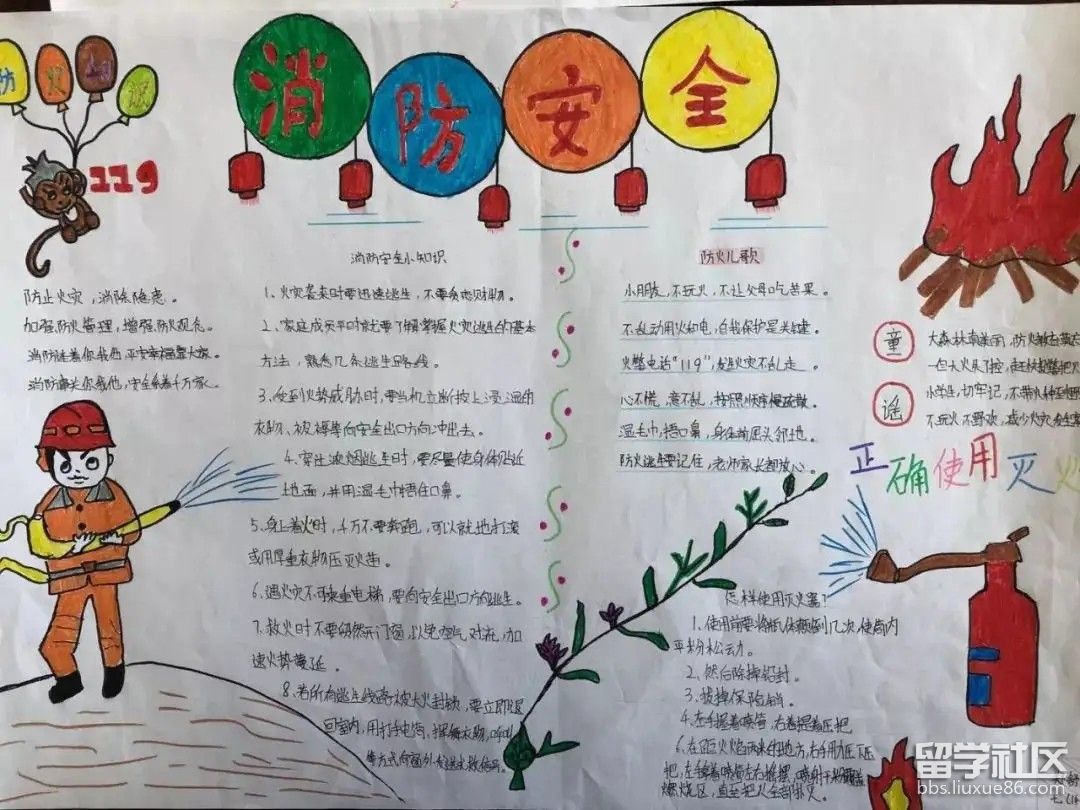 消防安全
防火
119
防止火灾，消除隐患。
加强防火管理，增强防火观念。
消防连着你我他 平安幸福靠大家。
消防牵头你我他，安全系着千万家。
消防安全小知识
1、火灾袭来时要迅速逃生，不要贪恋财物。
2、家庭成员平时就要了解掌握火灾逃生的基本
方法，熟悉几条逃生路线。
3、受到火势威胁时，要当机立断披上浸湿的
衣物、被褥等向安全出口方向冲出去。
4、穿过浓烟逃生时，要尽量使身体贴近
地面，并用湿毛巾捂住口鼻。
5、身上着火时，千万不要奔跑，可以就地打滚
或用厚重衣物压灭火苗。
6、遇火灾不可乘坐电梯，要向安全出口方向逃生。
7、救火时不要贸然开门窗，以免空气对流，加
速火势蔓延。
8、若所有逃生线路被大火封锁，要立即退
回室内，用打手电筒、挥舞衣物、呼叫
等方式向窗外发送求救信号。
防火儿歌
小朋友，不玩火，不让父母吃苦果。
不乱动用火和电，自我保护是关键。
火警电话“119”，发生火灾不乱走。
心不慌，意不乱，按照顺序慢疏散。
湿毛巾，捂口鼻，身体前屈头邻地。
防火逃生要记住，老师家长都放心。
童谣
大森林，南美闭，防火
一旦火火
小学生，切牢记，不带火种
不玩火 不野炊，减少火灾
正确使用灭火
怎样使用灭火器？
1、使用前要将瓶体颠倒几次，使筒内
干粉松动。
2、然后除掉铅封。
3、拔掉保险销。
4、左手握着喷管，右手提着压把
6、在距火焰两米的地方，右手用力压下压
把，左手拿着喷管左右摇摆，喷射干粉覆盖
燃烧区，直至把火全部扑灭。
留学社区
bbs.liuxue86.com